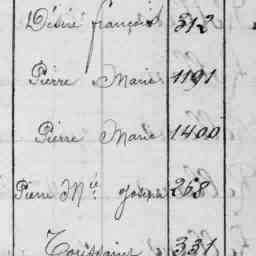 Désiré françois 312
Pierre Marie 1191
Pierre Marie 1400
Pierre Mie Joseph 268
Toussaint 331